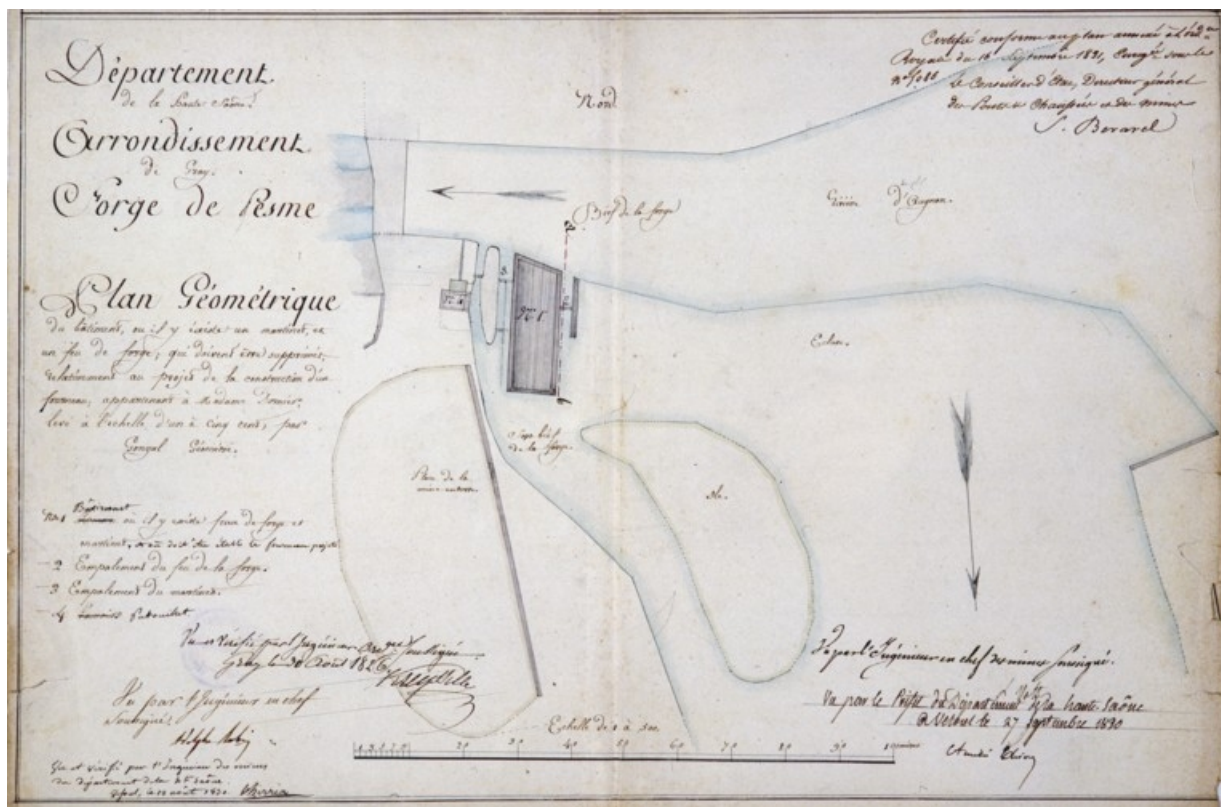 Département
de la haute Saône.
Arrondissement
de Gray.
Forge de Pesme
Plan Géométrique
du bâtiment, ou il y existe un martinet, et
un feu de forge, qui doivent être supprimés,
relativement au projet de la construction d'un
fourneau, appartenant à Madame
levé à l'échelle d'un à cinq cent, par
Géomètre.
No. 1 Bâtiment ou il y existe feux de forge et
martinet, et ou doit être établi le fourneau projeté
- 2 Empalement du feu de la forge.
- 3 Empalement du martinet.
- 4 Patouillet
Vu et vérifié par l'Ingénieur soussigné
Gray le Août 1826
Vu par l'Ingénieur en chef
Soussigné
Vu et vérifié par l'Ingénieur des mines
du département de la hte Saône.
Vesoul, le août 1830
Certifié conforme au plan annexé à l'ord.ce
Royale du Septembre 1831, Enreg.é sous le
Le Conseiller d'état, Directeur général
des Ponts et Chaussées et des mines
Nord.
Bief de la forge
Rivière d'Ougnon.
No. 1
3
4
Ecluse.
Sous bief
de la forge.
Place de la
mine
Ile.
Echelle de 1 à 500
10 20 30 40 50 60 70 80 90 100 mètres
Vu par l'Ingénieur en chef des mines soussigné.
Vu par le Préfet du Département de la haute-Saône
à Vesoul le 27 septembre 1830